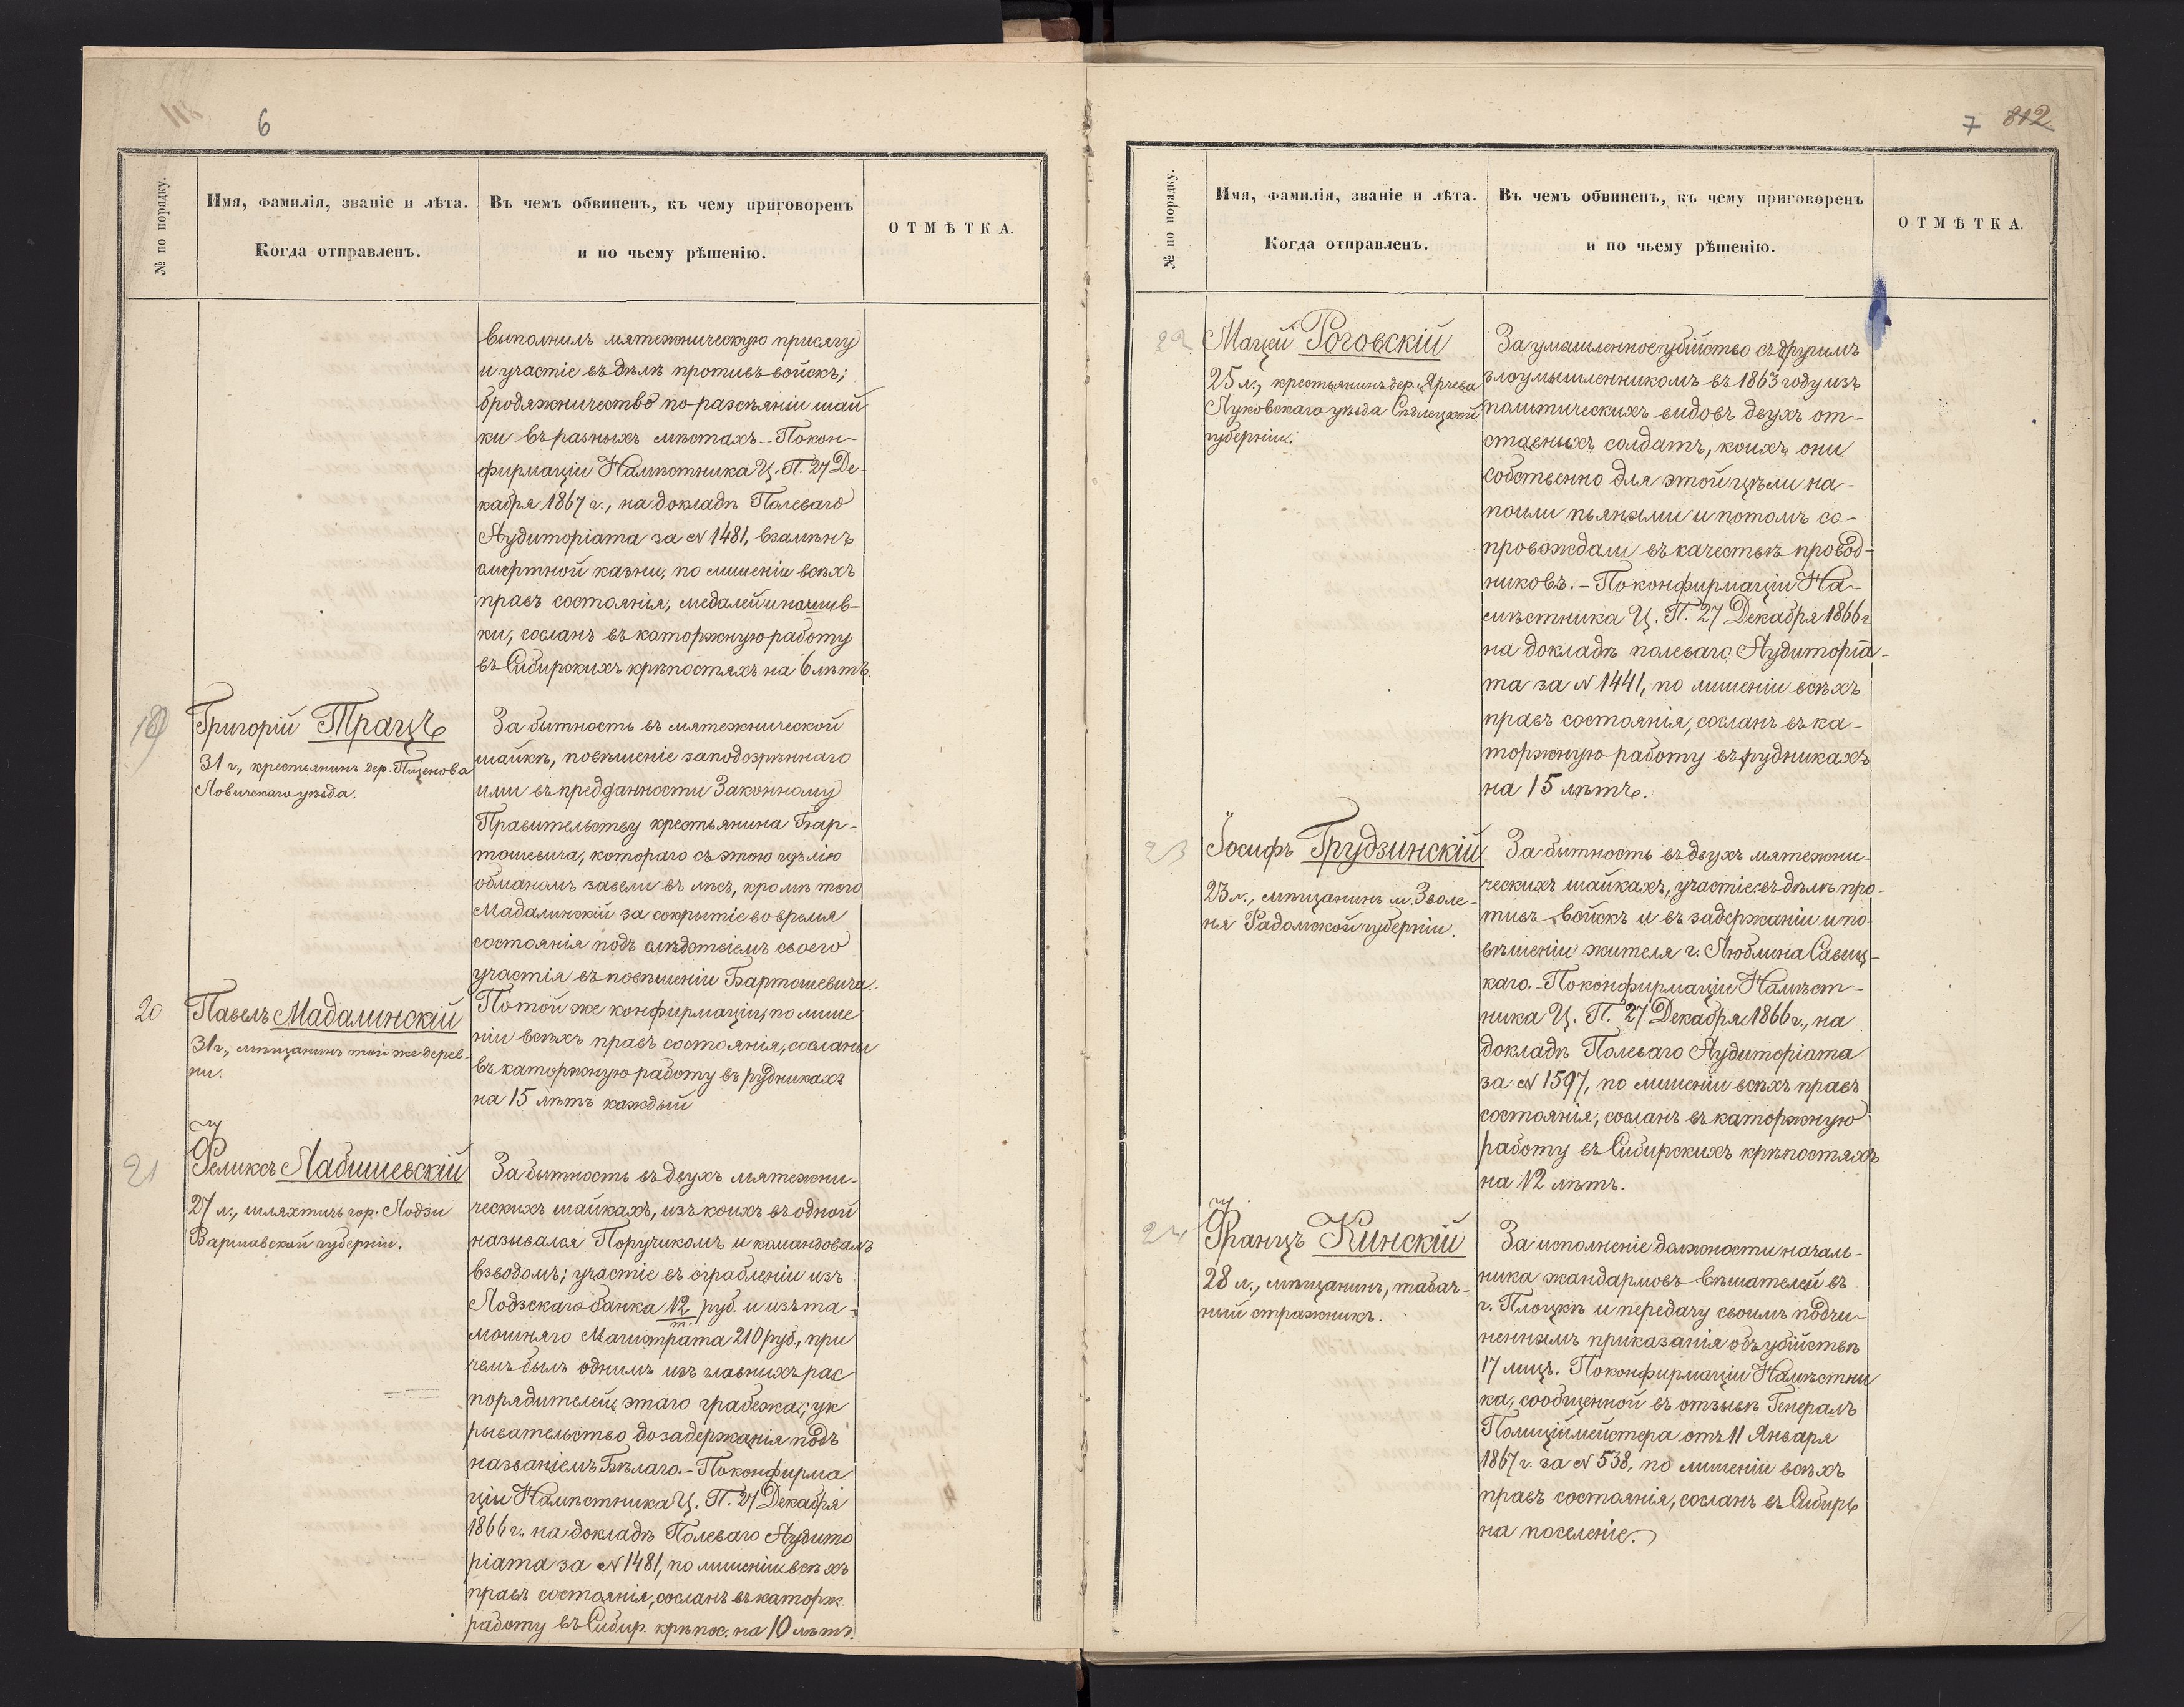 6
№ по порядку.
Имя, фамилія, званіе и лѣта.
Когда отправленъ.
Въ чемъ обвиненъ, къ чему приговоренъ
и по чьему рѣшенію.
ОТМѢТКА.
выполнилъ мятежническую присягу
и участіе въ дѣлѣ противъ войскъ;
бродяжничество по разсѣяніи шай
ки въ разныхъ мѣстахъ. - По кон-
фирмаціи Намѣстника Ц. П. 27 Де-
кабря 1867 г., на докладѣ Полеваго
Аудиторіата за № 1481, взамѣнъ
смертной казни, по лишеніи всѣхъ
правъ состоянія, медалей и нашив-
ки, сосланъ въ каторжную работу
въ Сибирскихъ крѣпостяхъ на 6 лѣтъ.
19
Григорій Трацъ
31 г., крестьянинъ дер. Пщенова
Ловичскаго уѣзда.
За бытность въ мятежнической
шайкѣ, повѣшеніе заподозрѣннаго
ими въ предданности Законному
Правительству крестьянина Бар-
тошевича, котораго съ этою цѣлію
обманомъ завели въ лѣсъ, кромѣ того
Мадалинскій за сокрытіе во время
состоянія подъ слѣдствіемъ своего
участія въ повѣшеніи Бартошевича.
20
Павелъ Мадалинскій
31 г., мѣщанинъ той же дерев-
ни.
По той же конфирмаціи, по лише
ніи всѣхъ правъ состоянія, сосланы
въ каторжную работу въ рудникахъ
на 15 лѣтъ каждый
21
Феликсъ Лабишевскій
27 л., шляхтичъ гор. Лодзи
Варшавской губерніи.
За бытность въ двухъ мятежни-
ческихъ шайкахъ, изъ коихъ въ одной
назывался Поручикомъ и командовалъ
взводомъ; участіе въ ограбленіи изъ
Лодзскаго банка 12 т. руб. и изъ та-
мошняго Магистрата 210 руб., при
чемъ былъ однимъ изъ главныхъ рас
порядителей этаго грабежа; ук
рывательство до задержанія подъ
названіемъ Бѣлаго. - По конфирма
ціи Намѣстника Ц. П. 27 Декабря
1866 г., на докладѣ Полеваго Аудито
ріата за № 1481, по лишеніи всѣхъ
правъ состоянія, сосланъ въ каторж.
работу въ Сибир. крѣпос. на 10 лѣтъ.
7 812
№ по порядку.
Имя, фамилія, званіе и лѣта.
Когда отправленъ.
Въ чемъ обвиненъ, къ чему приговоренъ
и по чьему рѣшенію.
ОТМѢТКА.
22
Мацей Роговскій
25 л., крестьянинъ дер. Ярчева
Луковскаго уѣзда Сѣдлецкой
губерніи.
За умышленное убійство съ другимъ
злоумышленникомъ въ 1863 году изъ
политическихъ видовъ двухъ от-
ставныхъ солдатъ, коихъ они
собственно для этой цѣли на-
поили пьяными и потомъ со-
провождали въ качествѣ провод-
никовъ. - По конфирмаціи На-
мѣстника Ц. П. 27 Декабря 1866 г.
на докладѣ полеваго Аудиторіа-
та за № 1441, по лишеніи всѣхъ
правъ состоянія, сосланъ въ ка-
торжную работу въ рудникахъ
на 15 лѣтъ.
23
Іосифъ Грудзинскій
23 л., мѣщанинъ м. Зволе-
ня Радомской губерніи.
За бытность въ двухъ мятежни-
ческихъ шайкахъ, участіе въ дѣлѣ про-
тивъ войскъ и въ задержаніи и по-
вѣшеніи жителя г. Люблина Савиц-
каго. - По конфирмаціи Намѣст-
ника Ц. П. 27 Декабря 1866 г., на
докладѣ Полеваго Аудиторіата
за № 1597, по лишеніи всѣхъ правъ
состоянія, сосланъ въ каторжную
работу въ Сибирскихъ крѣпостяхъ
на 12 лѣтъ.
24
Францъ Кинскій
28 л., мѣщанинъ, табач-
ный стражникъ.
За исполненіе должности началь-
ника жандармовъ вѣшателей въ
г. Плоцкѣ и передачу своимъ подчи-
неннымъ приказанія объ убійствѣ
17 лицъ. По конфирмаціи Намѣстни
ка, сообщенной въ отзывѣ Генералъ
Полиціймейстера отъ 11 Января
1867 г. за № 538, по лишеніи всѣхъ
правъ состоянія, сосланъ въ Сибирь
на поселеніе.